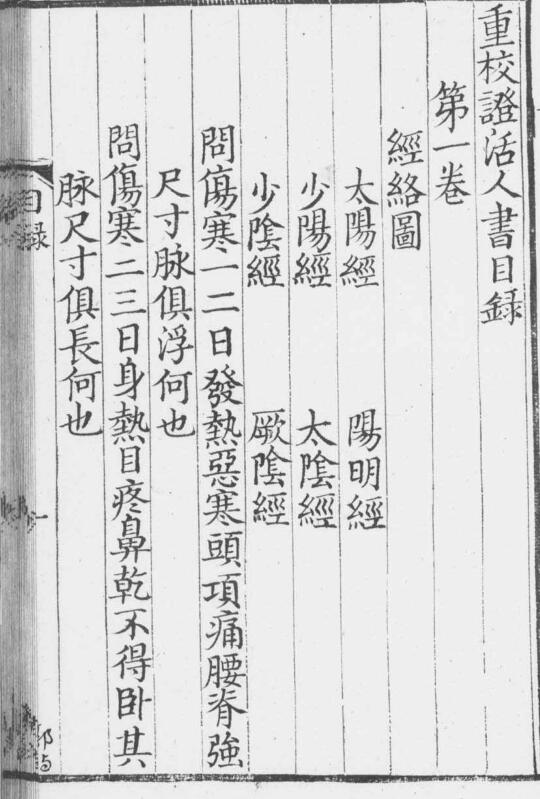 重校證活人書目錄
第一卷
經絡圖
太陽經　陽明經
少陽經　太陰經
少陰經　厥陰經
問傷寒一二日發熱惡寒頭項痛腰脊強
尺寸脉俱浮何也
問傷寒二三日身熱目疼鼻乾不得卧其
脉尺寸俱長何也
目錄